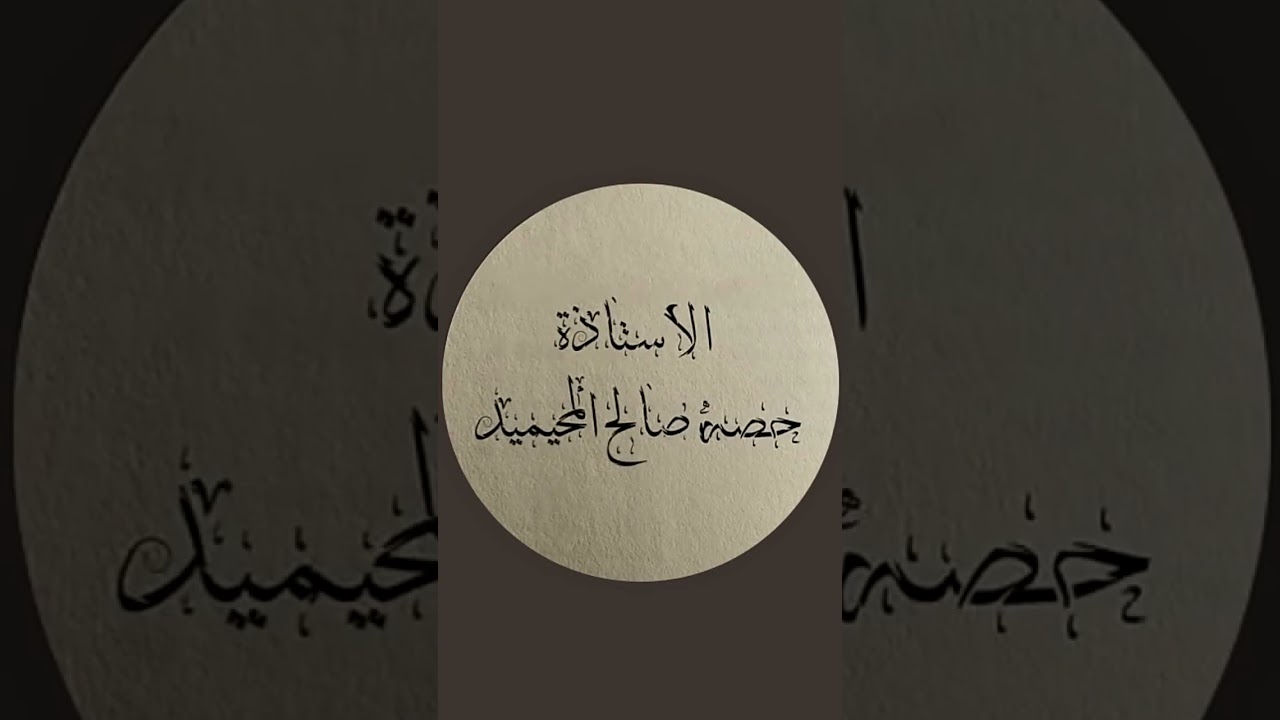 الأستاذة
حصه صالح المحيميد